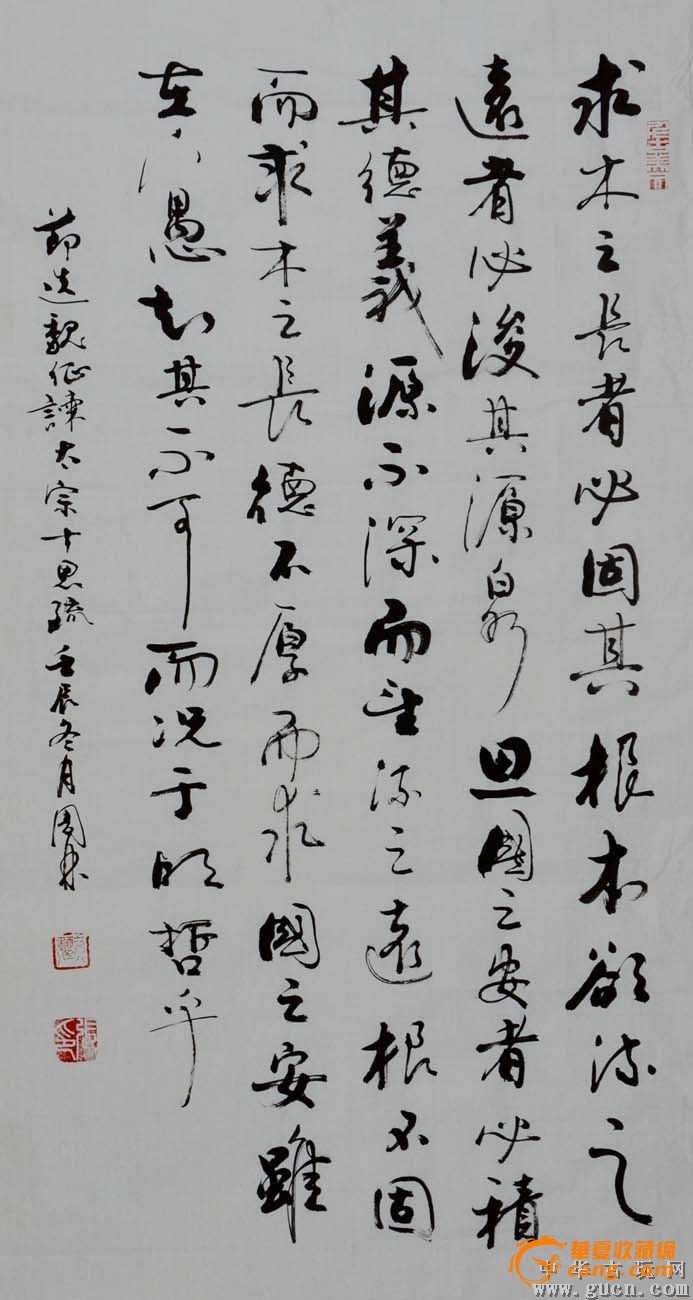 求木之長者必固其根本欲流之
遠者必浚其源泉思國之安者必積
其德義源不深而望流之遠根不固
而求木之長德不厚而求國之安雖
在下愚知其不可而况于明哲乎
節选魏征諫太宗十思疏壬辰冬月周
華夏收藏網
cang.com
中华古玩网
www.gucn.com